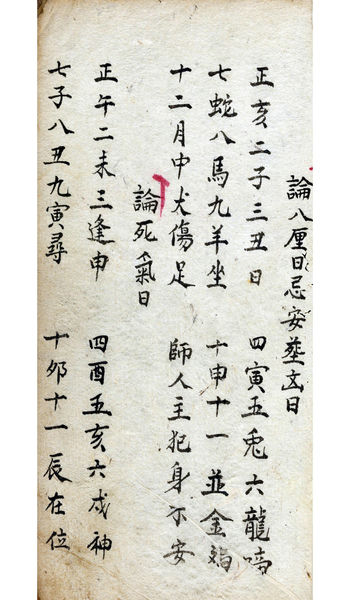 論八厘日忌安塟㐫日
正亥二子三丑日 四寅五兔六龍啼
七蛇八馬九羊坐 十申十一並金鷄
十二月中犬傷足 師人主犯身不安
論死氣日
正午二未三逢申 四酉五亥六戍神
七子八丑九寅尋 十卯十一辰在位